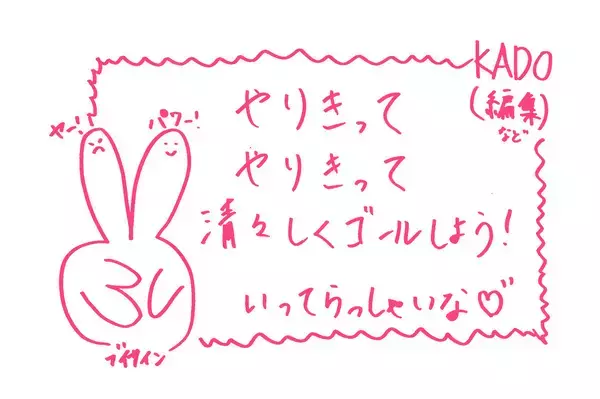 KADO
(編集)
など
ヤー!
パワー!
やりきって
やりきって
清々しくゴールしよう!
いってらっしゃいな♡
ブイサイン